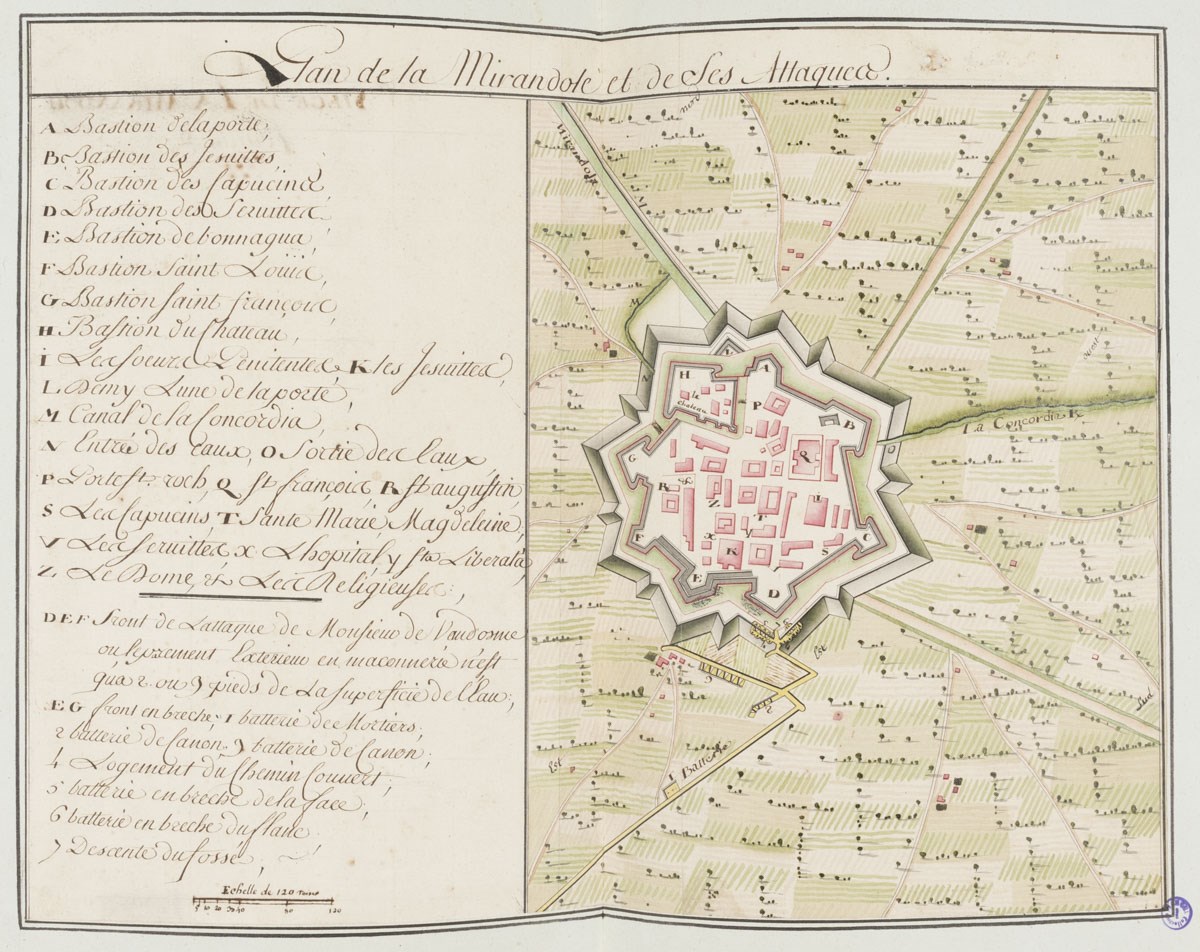 Plan de la Mirandole et de Ses Attaques.
A Bastion de la porte,
B Bastion des Jesuittes
C Bastion des Capucins
D Bastion des Servittes
E Bastion de bonnagua,
F Bastion Saint Loüis,
G Bastion Saint françois,
H Bastion du Chateau,
I Les Soeurs Penitentes K les Jesuittes,
L Demy Lune de la porte,
M Canal de la Concordia,
N Entrée des Eaux, O Sortie des Eaux
P Porte St. roch, Q St françois, R st augustin,
S Les Capucins T Sante Marie Magdeleine,
V Les Servittes x L'hopital, y ste Liberata,
Z Le Dome, & Les Religieuses,
DEF front de Lattaque de Monsieur de Vaudomme
ou le Exterieur en maconnerie n'est
qu'a 2 ou 3 pieds de La superficie de L'Eau,
ÆG front en breche, 1 batterie de Mortiers,
2 batterie de Canon, 3 batterie de Canon,
4 Logement du Chemin Couvert,
5 batterie en breche de la face,
6 batterie en breche du flanc
7 Descente du fossé,
Echelle de 120
120
nord
M
L
A
H
le
Chateau
N
P
B
O
La Concordia R
G
Q
R
&
Z
I
T
V
F
x
K
S
C
E
D
Est
2
1 Batterie
Est
Sud